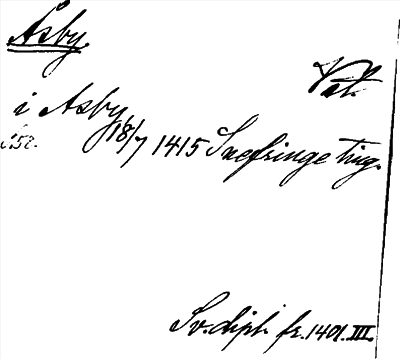 Åsby.
Vstl.
i Asby 18/7 1415 Snefringe ting.
Sv. dipl. fr. 1401. III.